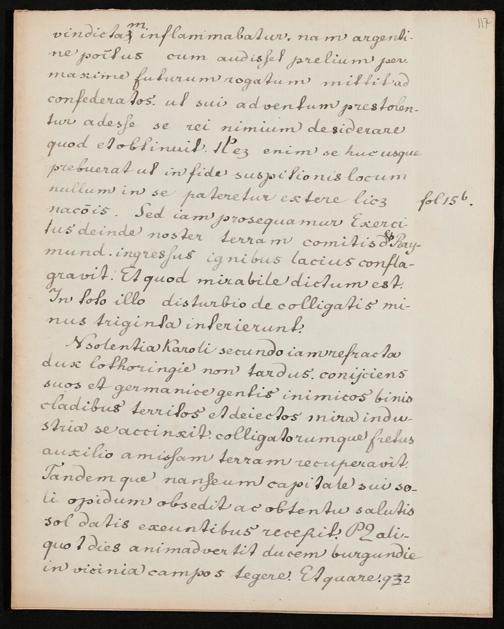 117
vindictaʒm inflammabatur. nam argenti-
ne pōtus cum audisset prelium per
maxime futurum rogatum mittit ad
confederatos. ut sui adventum prestolen-
tur adesse se rei nimium desiderare
quod et obtinuit. enim se huc usque
prebuerat ut in fide suspitionis locum
nullum in se pateretur extere licʒ fol 15b.
nacōis. Sed iam prosequamur Exerci-
tus deinde noster terram comitis Ray-
mund. ingressus ignibus lacius confla-
gravit. Et quod mirabile dictum est.
In toto illo disturbio de colligatis mi-
nus triginta interierunt.
Nsolentia Karoli secundo iam refracta
dux lothoringie non tardus. conijciens
suos et germanice gentis inimicos binis
cladibus territos et deiectos mira indu-
stria se accinxit. colligatorumque fretus
auxilio amissam terram recuperavit.
Tandem que nanseum capitale sui so-
li opidum obsedit ac obtentu salutis
sol datis exeuntibus recepit. ali-
quot dies animadvertit ducem burgundie
in vicinia campos tegere. Et quare.